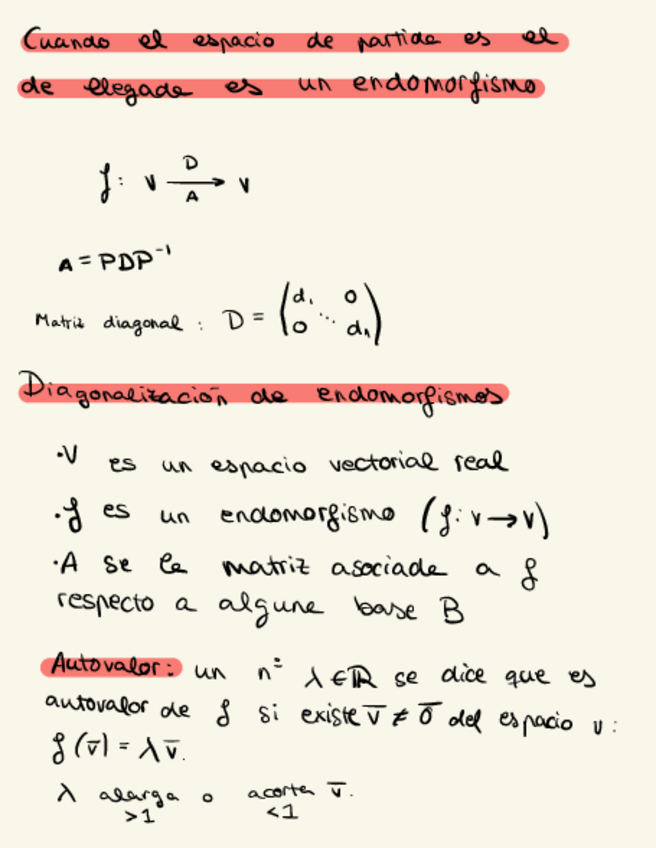 Cuando el espacio de partida es el
de llegada es un endomorfismo
f: V —D/A→ V
A = PDP⁻¹
Matriz diagonal : D = (d₁ 0
0 ⋱ dₙ)
Diagonalización de endomorfismos
·V es un espacio vectorial real
·f es un endomorfismo (f: V→V)
·A se la matriz asociada a f
respecto a alguna base B
Autovalor: un nº λ∈ℝ se dice que es
autovalor de f si existe v̄ ≠ 0̄ del espacio V:
f(v̄) = λv̄.
λ alarga o acorta v̄.
>1 <1